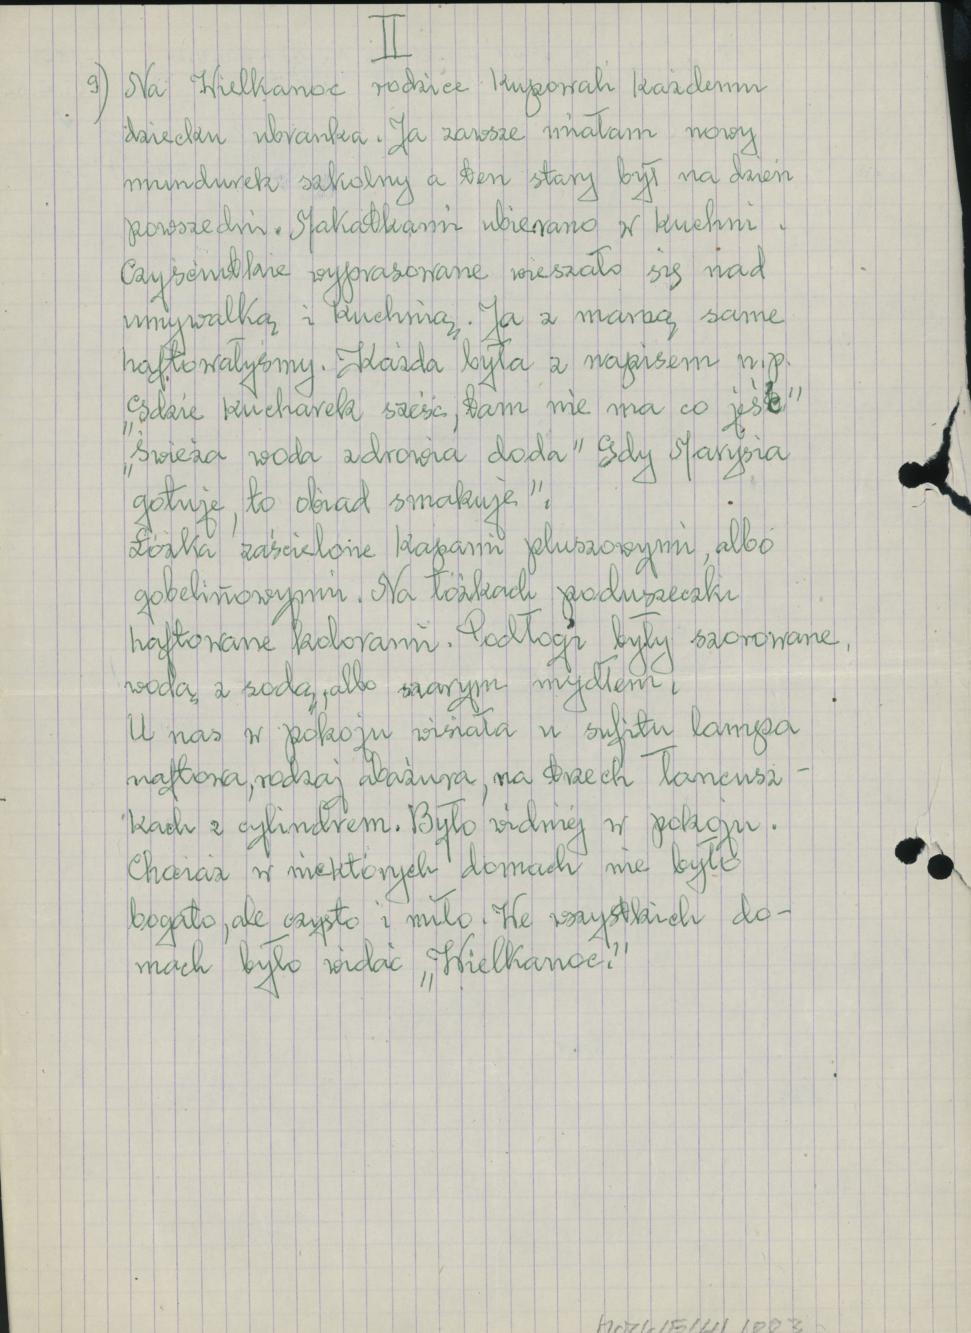 II
9) Na Wielkanoc rodzice kupowali każdemu
dziecku ubranka. Ja zawsze miałam nowy
mundurek szkolny a ten stary był na dzień
powszedni. Makatkami ubierano w kuchni.
Czyściutkie wyprasowane wieszało się nad
umywalką i kuchnią. Ja z mamą same
haftowałyśmy. Każda była z napisem n.p.
„Gdzie kucharek sześć, tam nie ma co jeść"
„Świeża woda zdrowia doda" Gdy Marysia
gotuje, to obiad smakuje".
Łóżka zaścielone kapami pluszowymi, albo
gobelinowymi. Na łóżkach poduszeczki
haftowane kolorami. Podłogi były szorowane,
wodą z sodą, albo szarym mydłem.
U nas w pokoju wisiała u sufitu lampa
naftowa, rodzaj abażura, na trzech łancusz-
kach z cylindrem. Było widniej w pokoju.
Chociaż w niektórych domach nie było
bogato, ale czysto i miło. We wszystkich do-
mach było widać „Wielkanoc."